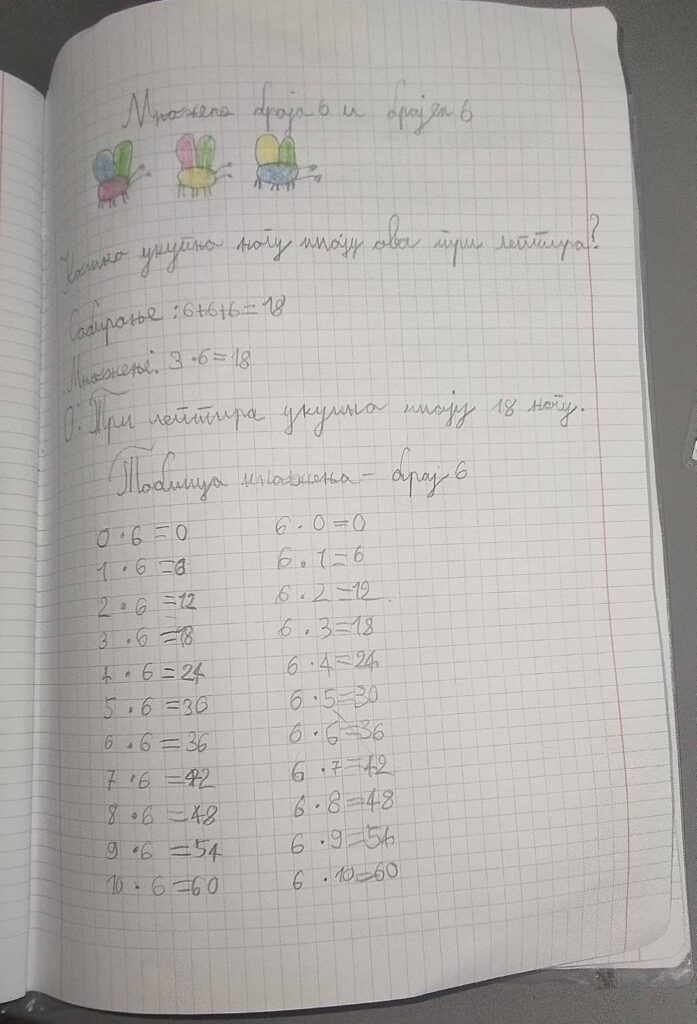 Множење броја 6 и бројем 6
Колико укупно ногу имају ова три лептира?
Сабирање: 6+6+6=18
Множење: 3·6=18
О: Три лептира укупно имају 18 ногу.
Таблица множења – број 6
0·6=0 6·0=0
1·6=6 6·1=6
2·6=12 6·2=12
3·6=18 6·3=18
4·6=24 6·4=24
5·6=30 6·5=30
6·6=36 6·6=36
7·6=42 6·7=42
8·6=48 6·8=48
9·6=54 6·9=54
10·6=60 6·10=60